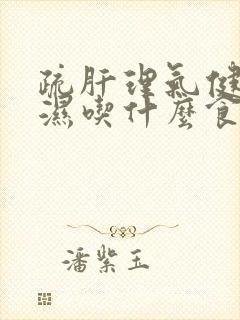 疏肝理气健
濕喫什麼食
潘紫玉